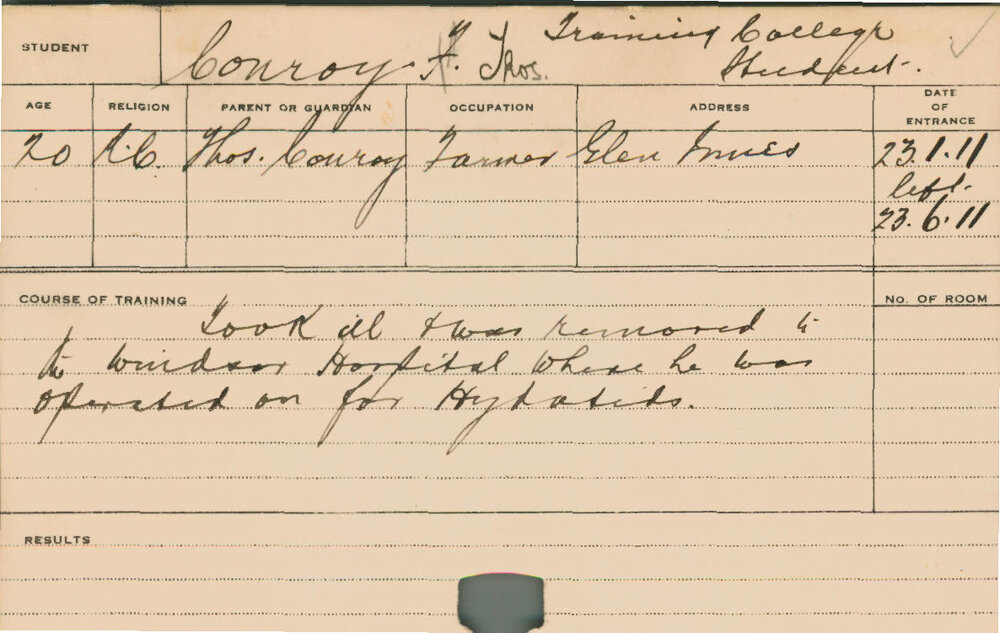 STUDENT Conroy. F. Thos. Training College
Student.
AGE RELIGION PARENT OR GUARDIAN OCCUPATION ADDRESS DATE OF ENTRANCE
20 R.C. Thos. Conroy Farmer Glen Innes 23.1.11
left.
23.6.11
COURSE OF TRAINING No. OF ROOM
Took ill & was removed to
the Windsor Hospital where he was
operated on for Hydatids.
RESULTS